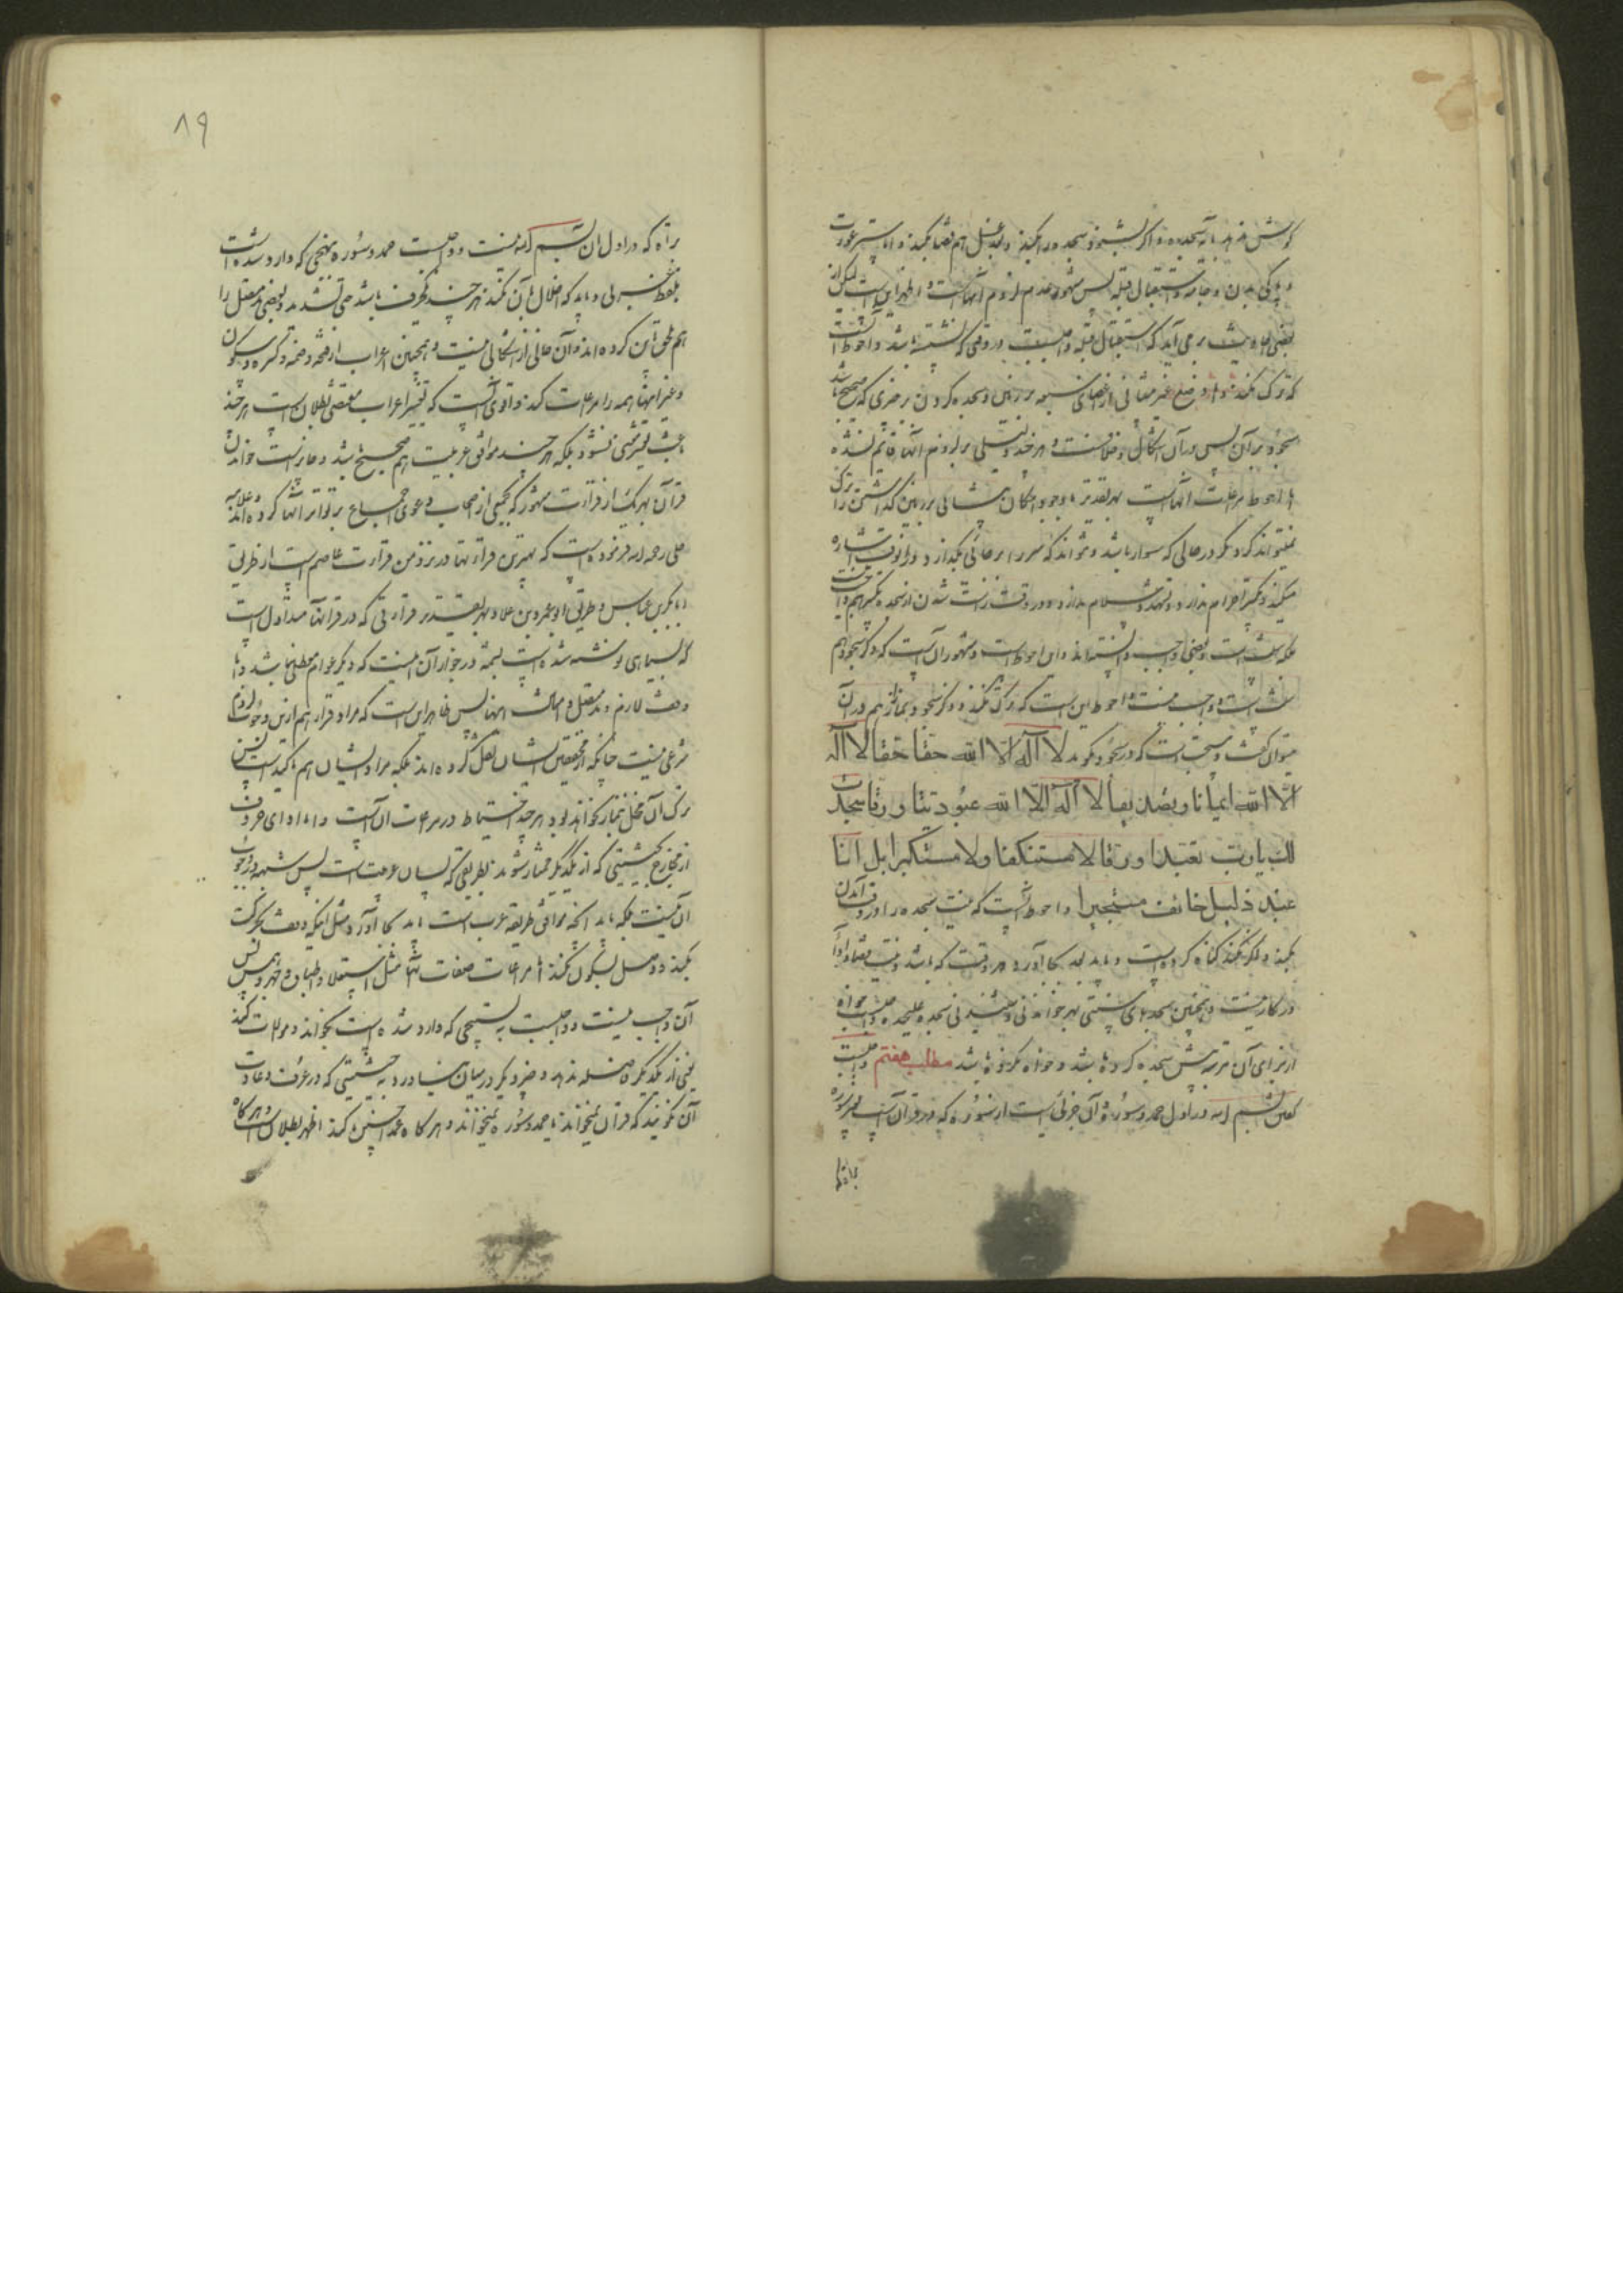 گوش ندهد بآیه سجده و اگر بشنود سجده را بکند و بعد غسل هم قضا بکند و اما ستر عورت
و پاکی بدن و جامه و استقبال قبله پس مشهور عدم لزوم آنهاست و اظهر این است لیکن از
بعضی احادیث بر می آید که استقبال قبله واجبست در وقتی که نشسته باشد و احوط آنست
که ترک نکند و اما وضع غیر پیشانی از اعضای سبعه بر زمین و سجده کردن بر چیزی که صحیح باشد
سجود بر آن پس در آن اشکال و خلافست و هر چند دلیلی بر لزوم آنها قایم نشده
اما احوط مراعات آنهاست بهر تقدیر با وجود امکان پیشانی بر زمین گذاشتن را ترک
نمیتواند کرد مگر در حالی که سوار باشد و نتواند که سر را بر جائی بگذارد و در آنوقت اشاره
میکند و تکبیر احرام ندارد و تشهد و سلام ندارد و در وقت راست شدن از سجده تکبیر هم واجب نیست
بلکه سنت است و بعضی واجب دانسته اند و این احوط است و مشهور آن است که ذکر سجود هم
سنت است و واجب نیست و احوط این است که ترک نکند و ذکر سجود نماز هم در آن
میتوان گفت و مستحب است که در سجود بگوید لا اله الا الله حقا حقا لا اله
الا الله ایمانا و تصدیقا لا اله الا الله عبودیتا و رقا سجدت
لک یا رب تعبدا و رقا لا مستنکفا و لا مستکبرا بل انا
عبد ذلیل خائف مستجیر و احوط آنست که نیت سجده را در وقت آمدن
بکند و اگر نکند گناه کرده است و باید بعد بجا آورد هر وقت که باشد و نیت قضا و ادا
در کار نیست و همچنین سجدهای سنتی بهر خواندنی و شنیدنی سجده علیحده واجب است خواه
از برای آن مرتبه پیش سجده کرده باشد و خواه نکرده باشد مطلب هفتم واجبست
گفتن بسم الله در اول حمد و سوره و آن جزئی است از سوره که در قرآن است بغیر سوره
براة
۸۹
براة که در اول آن بسم الله نیست و واجبست حمد و سوره بنهجی که وارد شده است
بلفظ عربی و باید که اخلال بآن نکند هر چند بحرف باشد حتی تشدید و بعضی مد متصل را
هم ملحق باین کرده اند و آن خالی از اشکالی نیست و همچنین اعراب از فتحه و ضمه و کسره و سکون
و غیر اینها همه را مراعات کند و اقوی آنست که تغییر اعراب مقتضی بطلان است هر چند
باعث تغییر معنی نشود بلکه هر چند موافق عربیت هم صحیح باشد و جایز است خواندن
قرآن بهر یک از قرآءت مشهور که جمعی از اصحاب دعوی اجماع بر تواتر آنها کرده اند و علامه
حلی رحمه الله فرموده است که بهترین قرآءتها در نزد من قراءت عاصم است از طریق
ابا بکر بن عیاش و طریق ابو عمرو بن علا و بهر تقدیر قراءتی که در قرآنها متداول است
که بسیاهی نوشته شده است شبهه در جواز آن نیست که دیگر عوام مطمئن باشد و اما
وقف لازم و مد متصل و امثال اینها پس ظاهر این است که مراد قراء هم از این وجوب لزوم
شرعی نیست چنانکه از محققین ایشان نقل کرده اند بلکه مراد ایشان هم تاکید است پس
ترک آن مخل بنماز نخواهد بود هر چند احتیاط در مراعات آن است و اما ادای حروف
از مخارج بحیثیتی که از یکدیگر ممتاز شوند بطریقی که لسان عرب است پس شبهه در وجوب
آن نیست بلکه باید آنچه موافق طریقه عرب است باید بجا آورد مثل اینکه وقف بحرکت
نکند و وصل بسکون نکند اما مراعات صفات آنها مثل استعلا و اطباق و جهر و همس پس
آن واجب نیست و واجبست به ترتیبی که وارد شده است بخواند و موالات کند
یعنی از یکدیگر فاصله ندهد و چیز دیگر در میان نیاورد به حیثیتی که در عرف و عادت
آن نگویند که قرآن نمیخواند یا حمد و سوره نمیخواند و هر گاه عمدا چنین کند اظهر بطلان است و هر گاه